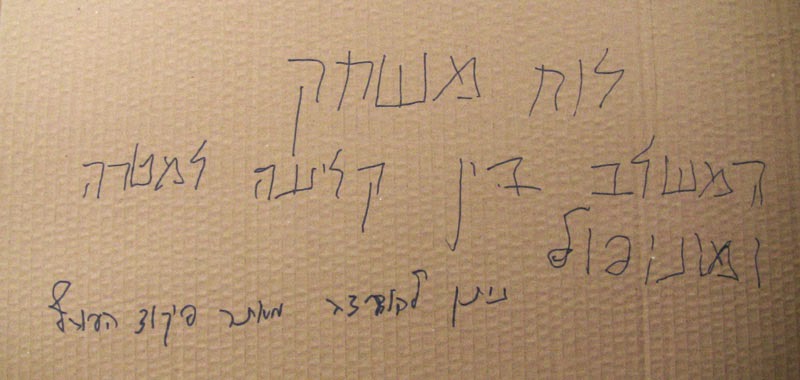 לוח משחק
המשלב בין קליעה למטרה
ומונופול
ניתן להורדה מאתר פיקוד העורף